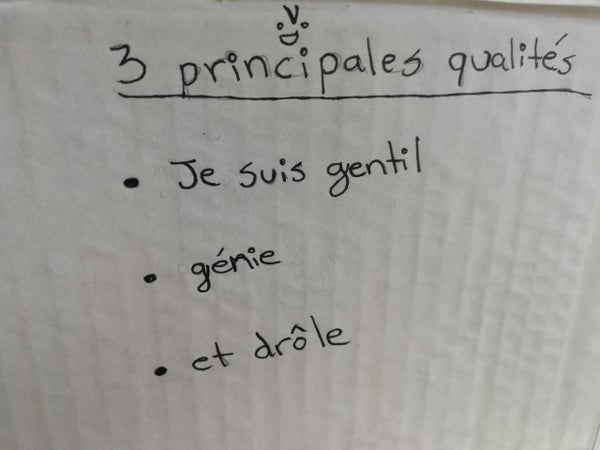 3 principales qualités
• Je suis gentil
• génie
• et drôle